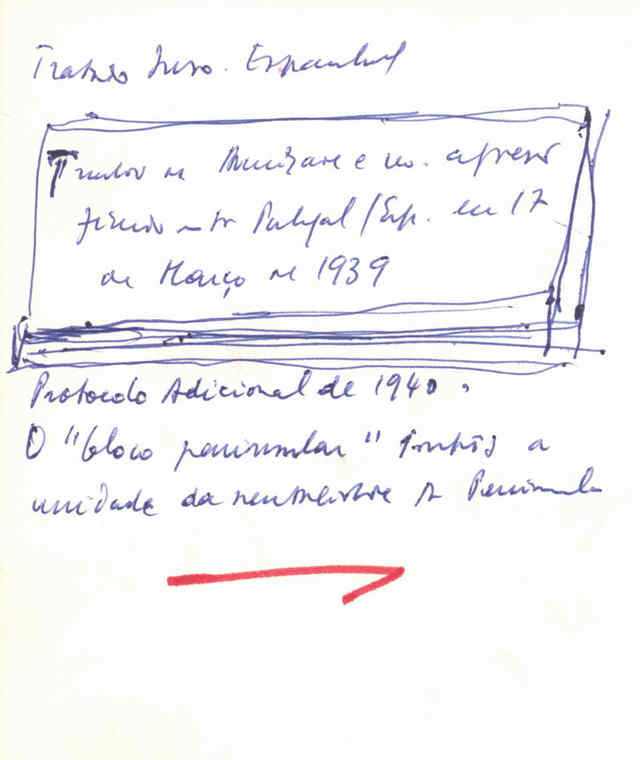 Tratado Luso-Espanhol
Tratado de Amizade e não agressão
firmado entre Portugal/Esp. em 17
de Março de 1939
Protocolo Adicional de 1940.
O "bloco peninsular" a
unidade da neutralidade da Península